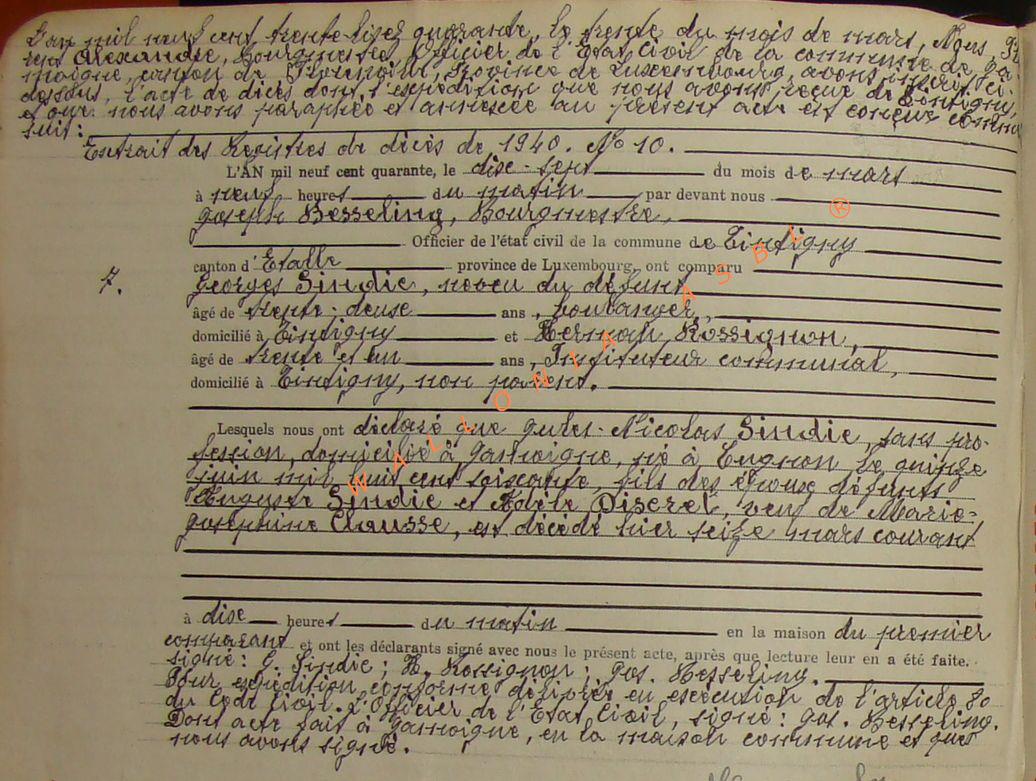 L'an mil neuf cent trente lisez quarante, le trente du mois de mars, Nous, Lau-
rent Alexandre, Bourgmestre, Officier de l'Etat Civil de la commune de Ja-
moigne, canton de Florenville, Province de Luxembourg, avons inscrit ci-
dessous, l'acte de décès dont l'expédition que nous avons reçue de Tintigny,
et que nous avons paraphée et annexée au présent acte est conçue comme
suit:
Extrait des Registres de décès de 1940. No 10.
L'AN mil neuf cent quarante, le dix-sept du mois de mars
à neuf heures du matin par devant nous
Joseph Besseling, Bourgmestre,
Officier de l'état civil de la commune de Tintigny
canton d'Etalle province de Luxembourg, ont comparu
7. Georges Sindic, neveu du défunt
âgé de trente-deux ans, boulanger,
domicilié à Tintigny et Herman Rossignon,
âgé de trente et un ans, Instituteur communal,
domicilié à Tintigny, non parent.
Lesquels nous ont déclaré que Jules-Nicolas Sindic, sans pro-
fession, domicilié à Jamoigne, né à le quinze
juin mil huit cent soixante, fils des époux défunts
Auguste Sindic et Adèle Discret, veuf de Marie-
Joséphine Clausse, est décédé hier seize mars courant
à dix heures du matin en la maison du premier
comparant et ont les déclarants signé avec nous le présent acte, après que lecture leur en a été faite.
signé: G. Sindic; H. Rossignon; Jos. Besseling.
Pour expédition conforme délivrée en exécution de l'article 80
du Code Civil. L'Officier de l'Etat Civil, signé: Jos. Besseling.
Dont acte fait à Jamoigne, en la maison commune et que
nous avons signé.
WALLONIA ASBL ®